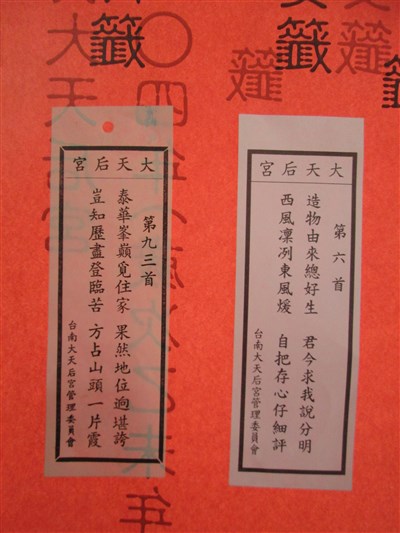 籤
籤
籤
籤
籤
大天后宮
第六首
造物由來總好生 君今求我說分明
西風凜冽東風煖 自把存心仔細評
台南大天后宮管理委員會
大天后宮
第九三首
泰華峯巔覓住家 果然地位逈堪誇
豈知歷盡登臨苦 方占山頭一片霞
台南大天后宮管理委員會